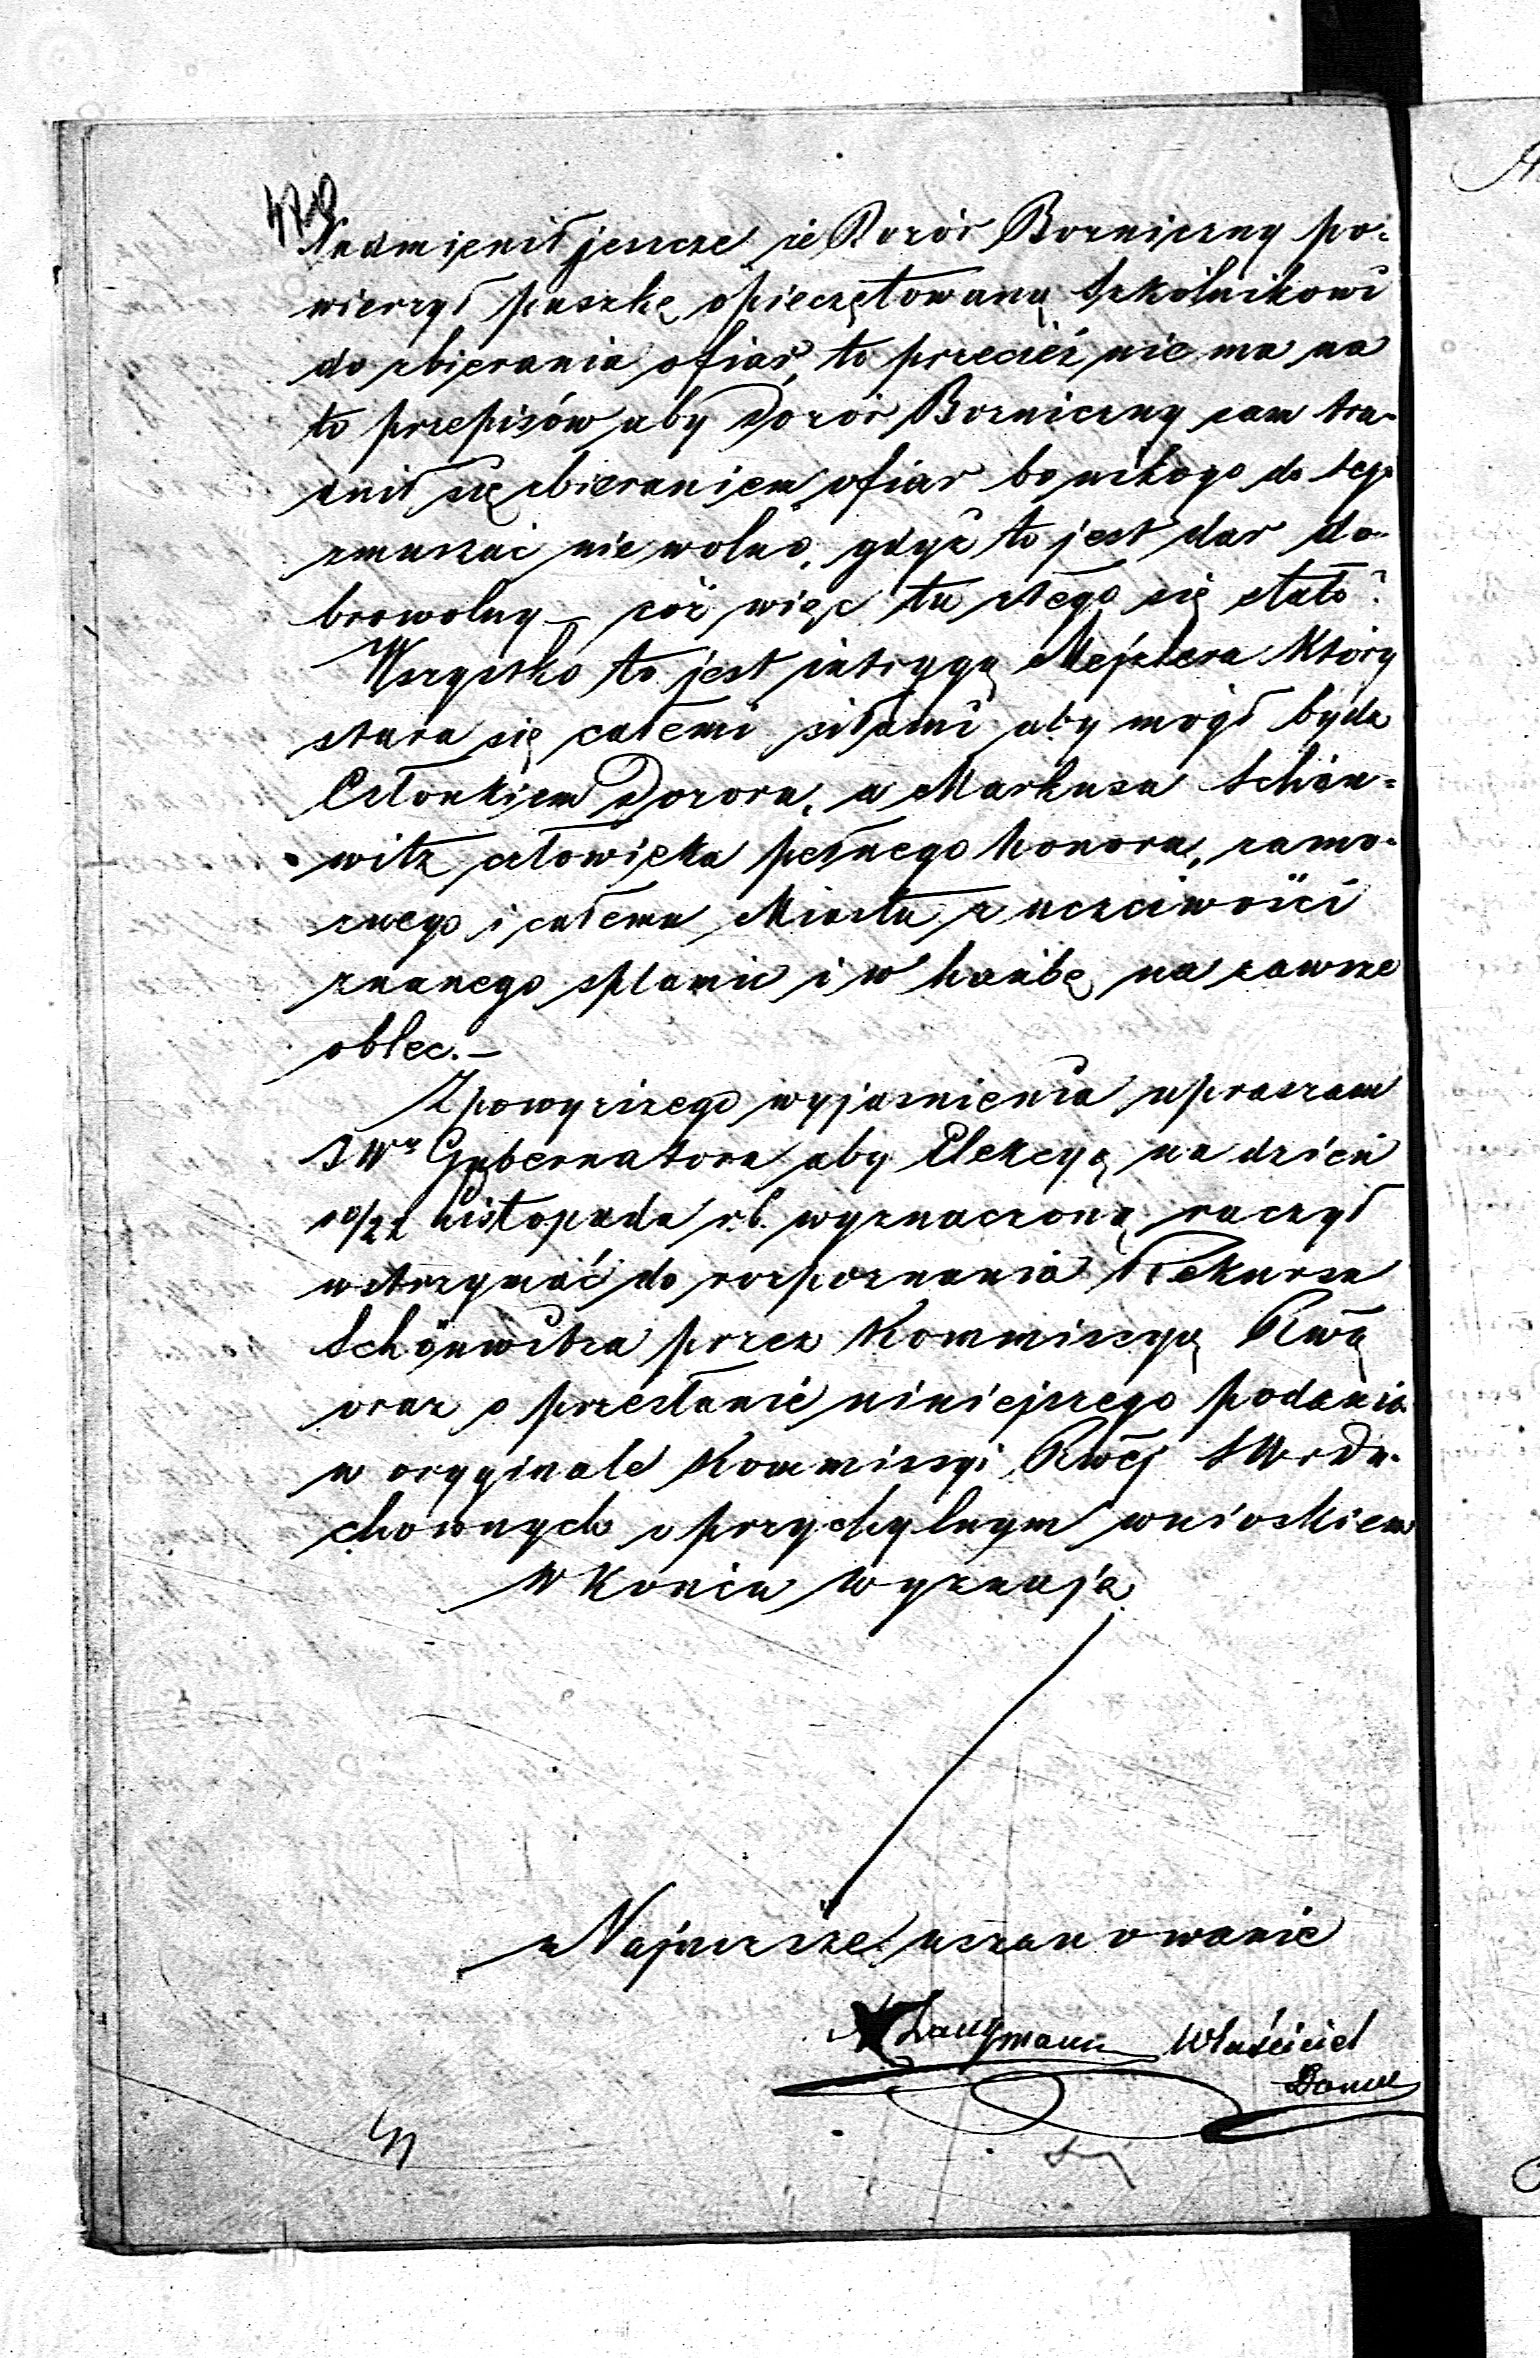 428
Nadmienił jeszcze że Dozór Bozniczny po-
wierzył puszkę opieczętowaną Szkolnikowi
do zbierania ofiar, to przecież nie ma na
to przepisów aby Dozór Bozniczny sam tru-
dnił się zbieraniem ofiar bo nikogo do tego
zmuszać nie wolno, gdyż to jest dar do-
browolny – cóż więc tu złego się stało?
Wszystko to jest intrygą Mejzlera który
stara się całemi siłami aby mógł bydz
Członkiem Dozoru, a Markusa Schön-
witz człowieka pełnego honoru, zamo-
znego i całemu Miastu z uczciwości
znanego splamic i w hańbę na zawsze
oblec. –
Z powyższego wyjasnienia upraszam
JWo Gubernatora aby Elekcyą na dzień
10/22 Listopada r.b. wyznaczoną raczył
wstrzymać do rozpoznania Rekursu
Schönwitza przez Kommissyą Rwą
oraz o przesłanie niniejszego podania
w oryginale Kommissyi Rwej SWrDu-
chownych z przychylnym wnioskiem
W końcu wyznaję
Najwyższe uszanowanie
Langmann Właściciel
Domu